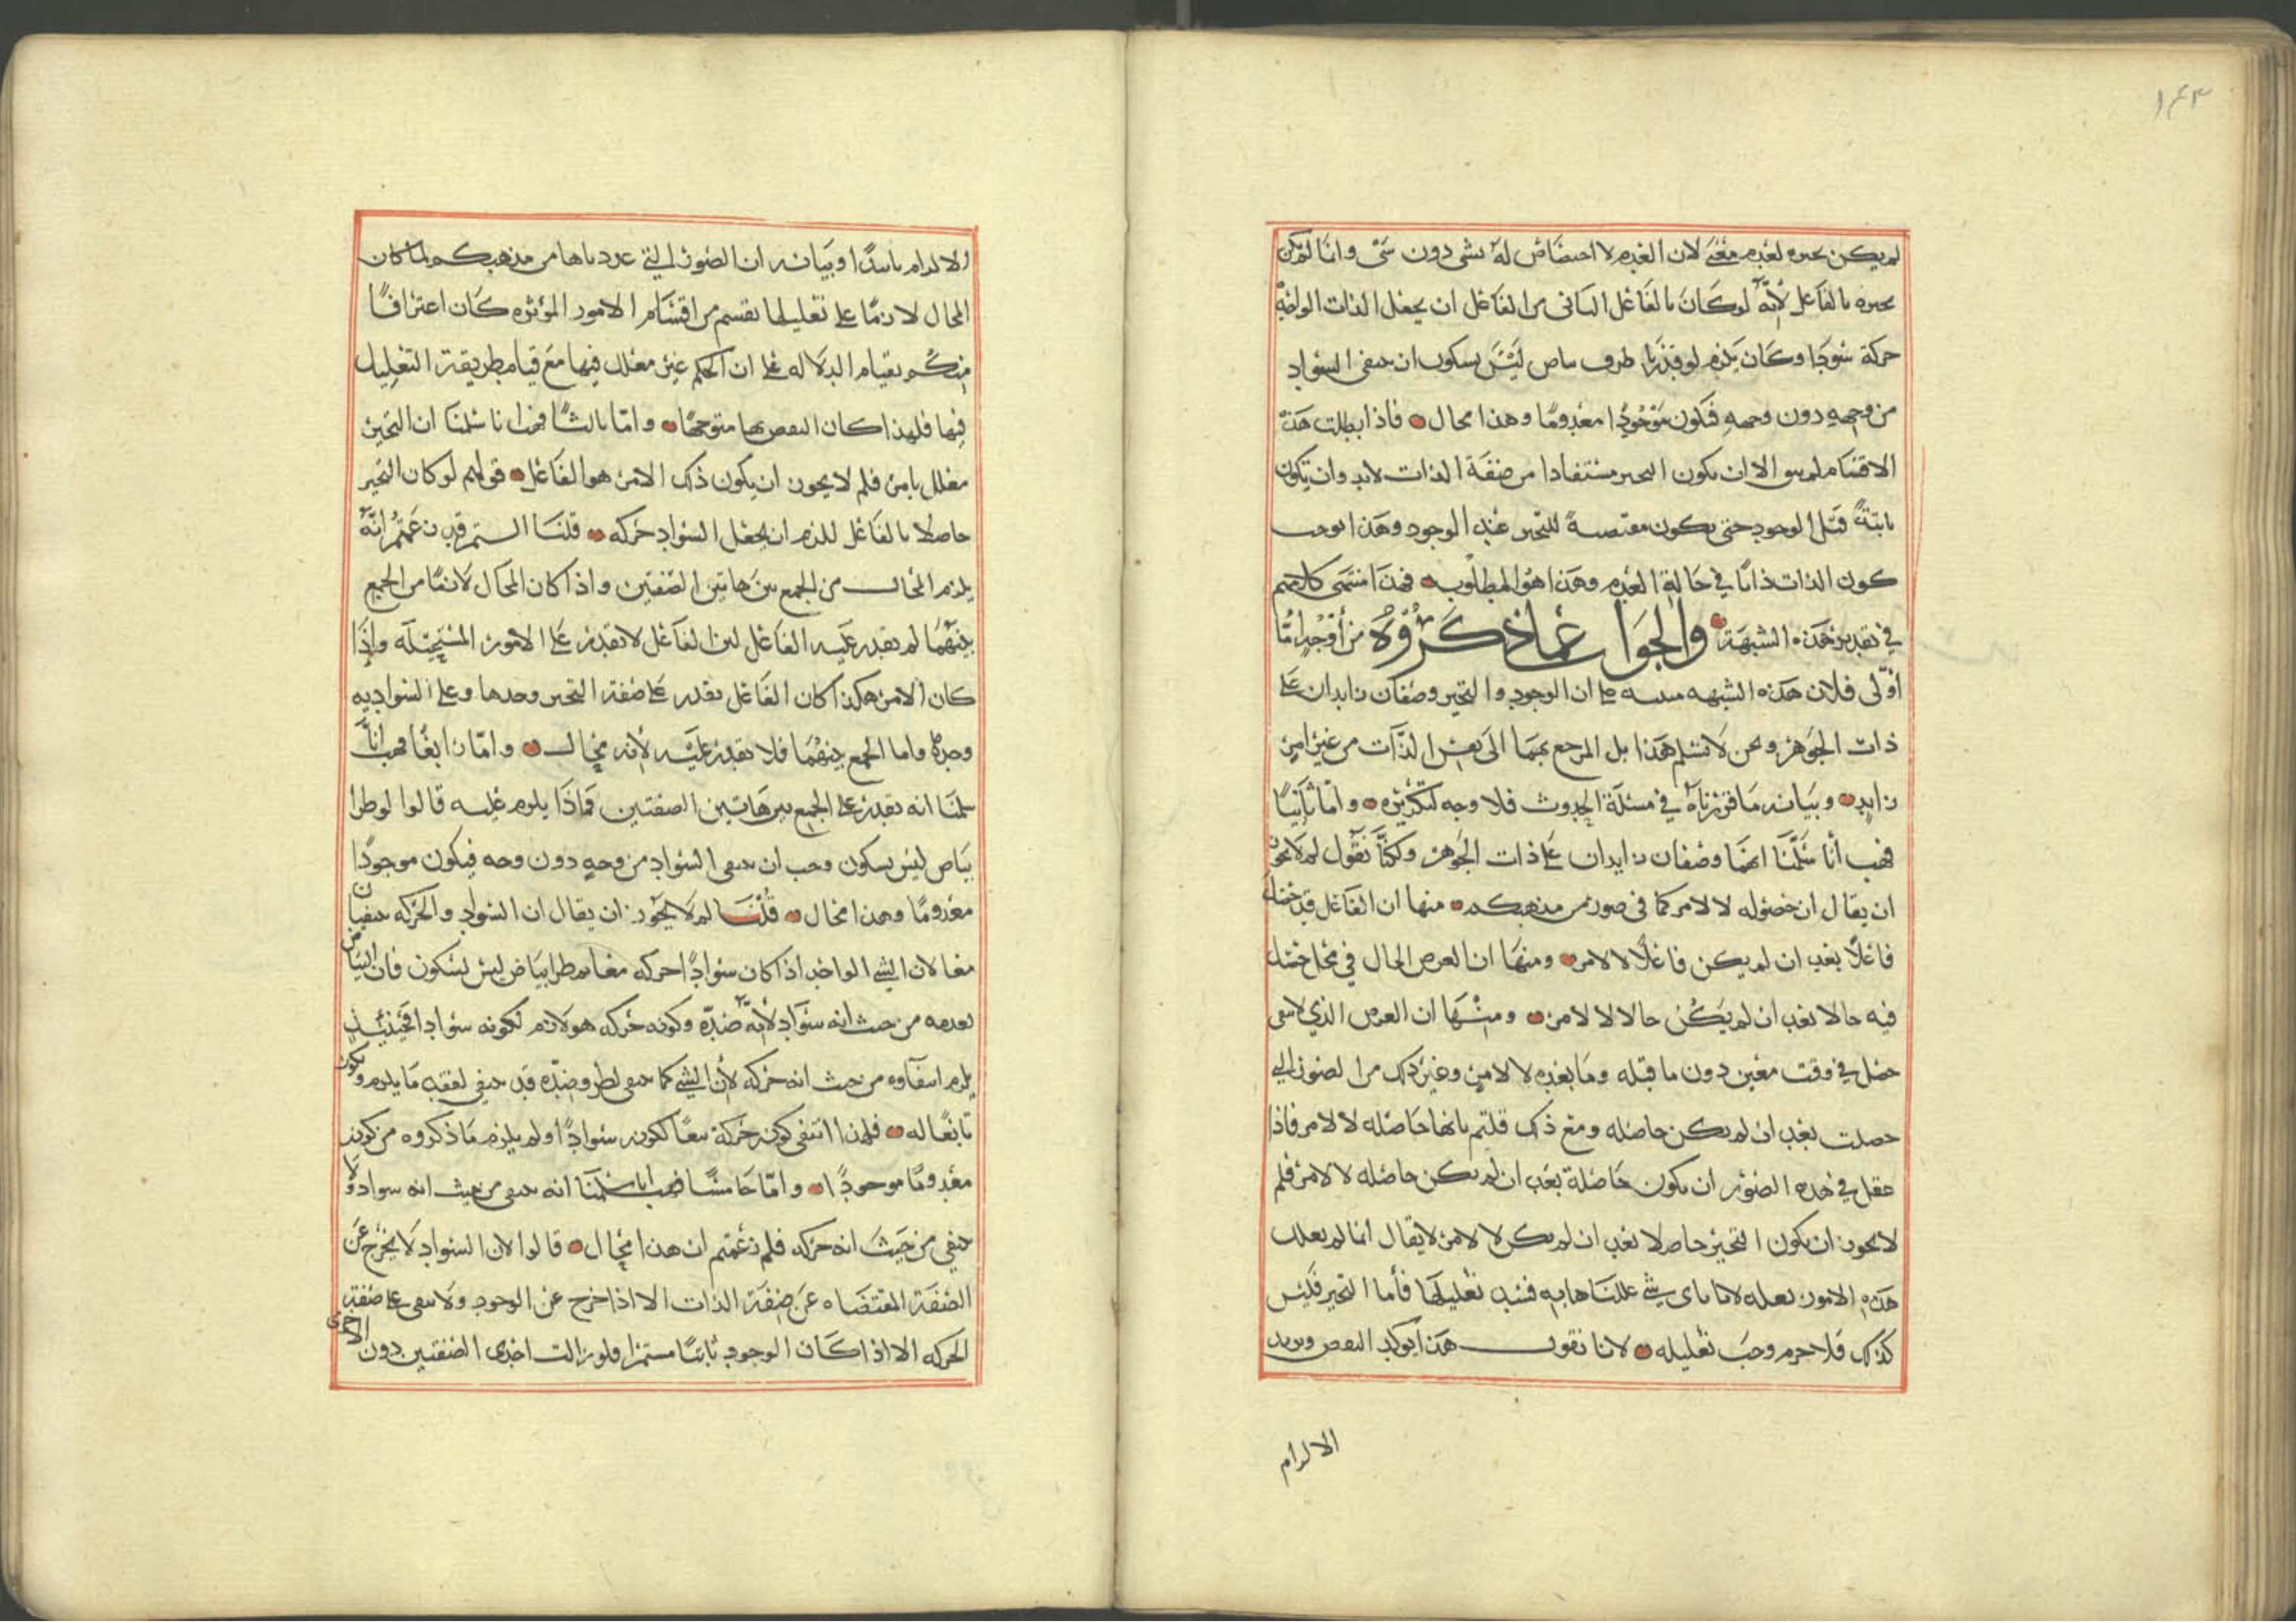 ١٤٣
لم يكن تحيزه لعدم معنى لان العدم لا اختصاص له بشى دون شى وانما لم يكن
تحيزه بالفاعل لأنه لو كان بالفاعل لتاتى من الفاعل ان يجعل الذات الواحدة
حركة سوادا وكان يلزم لو قدرنا طروء بياض ليس بسكون ان ينتفي السواد
من وجه دون وجه فتكون موجودا معدوما وهذا محال فاذا بطلت هذه
الاقسام لم يبق الا ان يكون التحيز مستفادا من صفة الذات لابد وان تكون
ثابتة قبل الوجود حتى تكون مقتضية للتحيز عند الوجود وهذا يوجب
كون الذات ذاتا في حالة العدم وهذا هو المطلوب فهذا منتهى كلامهم
في تقدير هذه الشبهة والجواب عما ذكروه من أوجه اما
أولى فلان هذه الشبهه مبنيه على ان الوجود والتحيز وصفان زايدان على
ذات الجوهر ونحن لا نسلم هذا بل المرجع بهما الى نفس الذات من غير امر
زايد وبيانه ما قررناه في مسئلة الحدوث فلا وجه لتكريره واما ثانيا
فهب أنا سلمنا انهما وصفان زايدان على ذات الجوهر ولكنا نقول لم لا يجوز
ان يقال ان حصوله لا لامر كما في صور من مذهبكم منها ان الفاعل قد حصل
فاعلا بعد ان لم يكن فاعلا لا لامر ومنها ان العرض الحال في محل حصل
فيه حالا بعد ان لم يكن حالا لا لامر ومنها ان العرض الذي لا يبقى
حصل في وقت معين دون ما قبله وما بعده لا لامر وغير ذلك من الصور التي
حصلت بعد ان لم يكن حاصله ومع ذلك قلتم بانها حاصله لا لامر فاذا
عقل في هذه الصور ان يكون حاصلة بعد ان لم يكن حاصله لا لامر فلم
لا يجوز ان يكون التحيز حاصلا بعد ان لم يكن لا لامر لا يقال انما لم نعلل
هذه الامور بعله لانا باى شي عللناها به فسد تعليلها فأما التحيز فليس
كذلك فلا جرم وجب تعليله لانا نقول هذا يوكد النقض ويزيد
الالزام
الالزام تاكيدا وبيانه ان الصور التي عددناها من مذهبكم لما كان
المحال لازما على تعليلها بقسم من اقسام الامور المؤثره كان اعترافا
منكم بقيام الدلاله على ان الحكم غير معلل فيها مع قيام طريقة التعليل
فيها فلهذا كان النقض بها متوجها واما ثالثا فهب انا سلمنا ان التحيز
معلل بامر فلم لا يجوز ان يكون ذلك الامر هو الفاعل قولهم لو كان التحيز
حاصلا بالفاعل للزم ان يجعل السواد حركه قلنا الستم قد زعمتم انه
يلزم المحال من الجمع بين هاتين الصفتين واذا كان المحال لازما من الجمع
بينهما لم يقدر عليه الفاعل لان الفاعل لا يقدر على الامور المستحيله واذا
كان الامر هكذا كان الفاعل يقدر على صفة التحيز وحدها وعلى السواديه
وحدها واما الجمع بينهما فلا يقدر عليه لأنه محال واما رابعا فهب أنا
سلمنا انه يقدر على الجمع بين هاتين الصفتين فماذا يلزم عليه قالوا لو طرا
بياض ليس بسكون وجب ان ينتفى السواد من وجه دون وجه فيكون موجودا
معدوما وهذا محال قلنا لم لا يجوز ان يقال ان السواد والحركه ينتفيان
معا لان الشي الواحد اذا كان سوادا حركه معا ثم طرا بياض ليس بسكون فان البياض
يعدمه من حيث انه سواد لأنه ضده وكونه حركه هو لازم لكونه سوادا فحينئذ
يلزم انتفاوه من حيث انه حركه لأن الشي كما ينتفى لطروء ضده قد ينتفي لفقد ما يلزم ويكون
تابعا له فلهذا انتفى كونه حركة تبعا لكونه سوادا ولم يلزم ما ذكروه من كونه
معدوما موجودا واما خامسا فهب انا سلمنا انه ينتفى من حيث انه سواد ولا
ينتفي من حيث انه حركه فلم زعمتم ان هذا محال قالوا لان السواد لا يخرج عن
الصفة المقتضاه عن صفة الذات الا اذا خرج عن الوجود ولا يبقى على صفة
الحركه الا اذا كان الوجود ثابتا مستمرا فلو زالت احدى الصفتين دون الاخرى